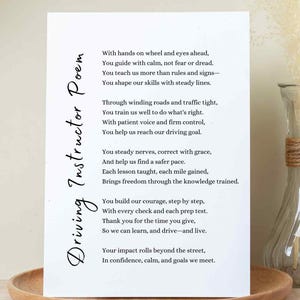 Driving Instructor Poem
With hands on wheel and eyes ahead,
You guide with calm, not fear or dread.
You teach us more than rules and signs—
You shape our skills with steady lines.
Through winding roads and traffic tight,
You train us well to do what's right.
With patient voice and firm control,
You help us reach our driving goal.
You steady nerves, correct with grace,
And help us find a safer pace.
Each lesson taught, each mile gained,
Brings freedom through the knowledge trained.
You build our courage, step by step,
With every check and each prep test.
Thank you for the drive you give,
So we can learn, and drive—and live.
Your impact rolls beyond the street,
In confidence, calm, and goals we meet.